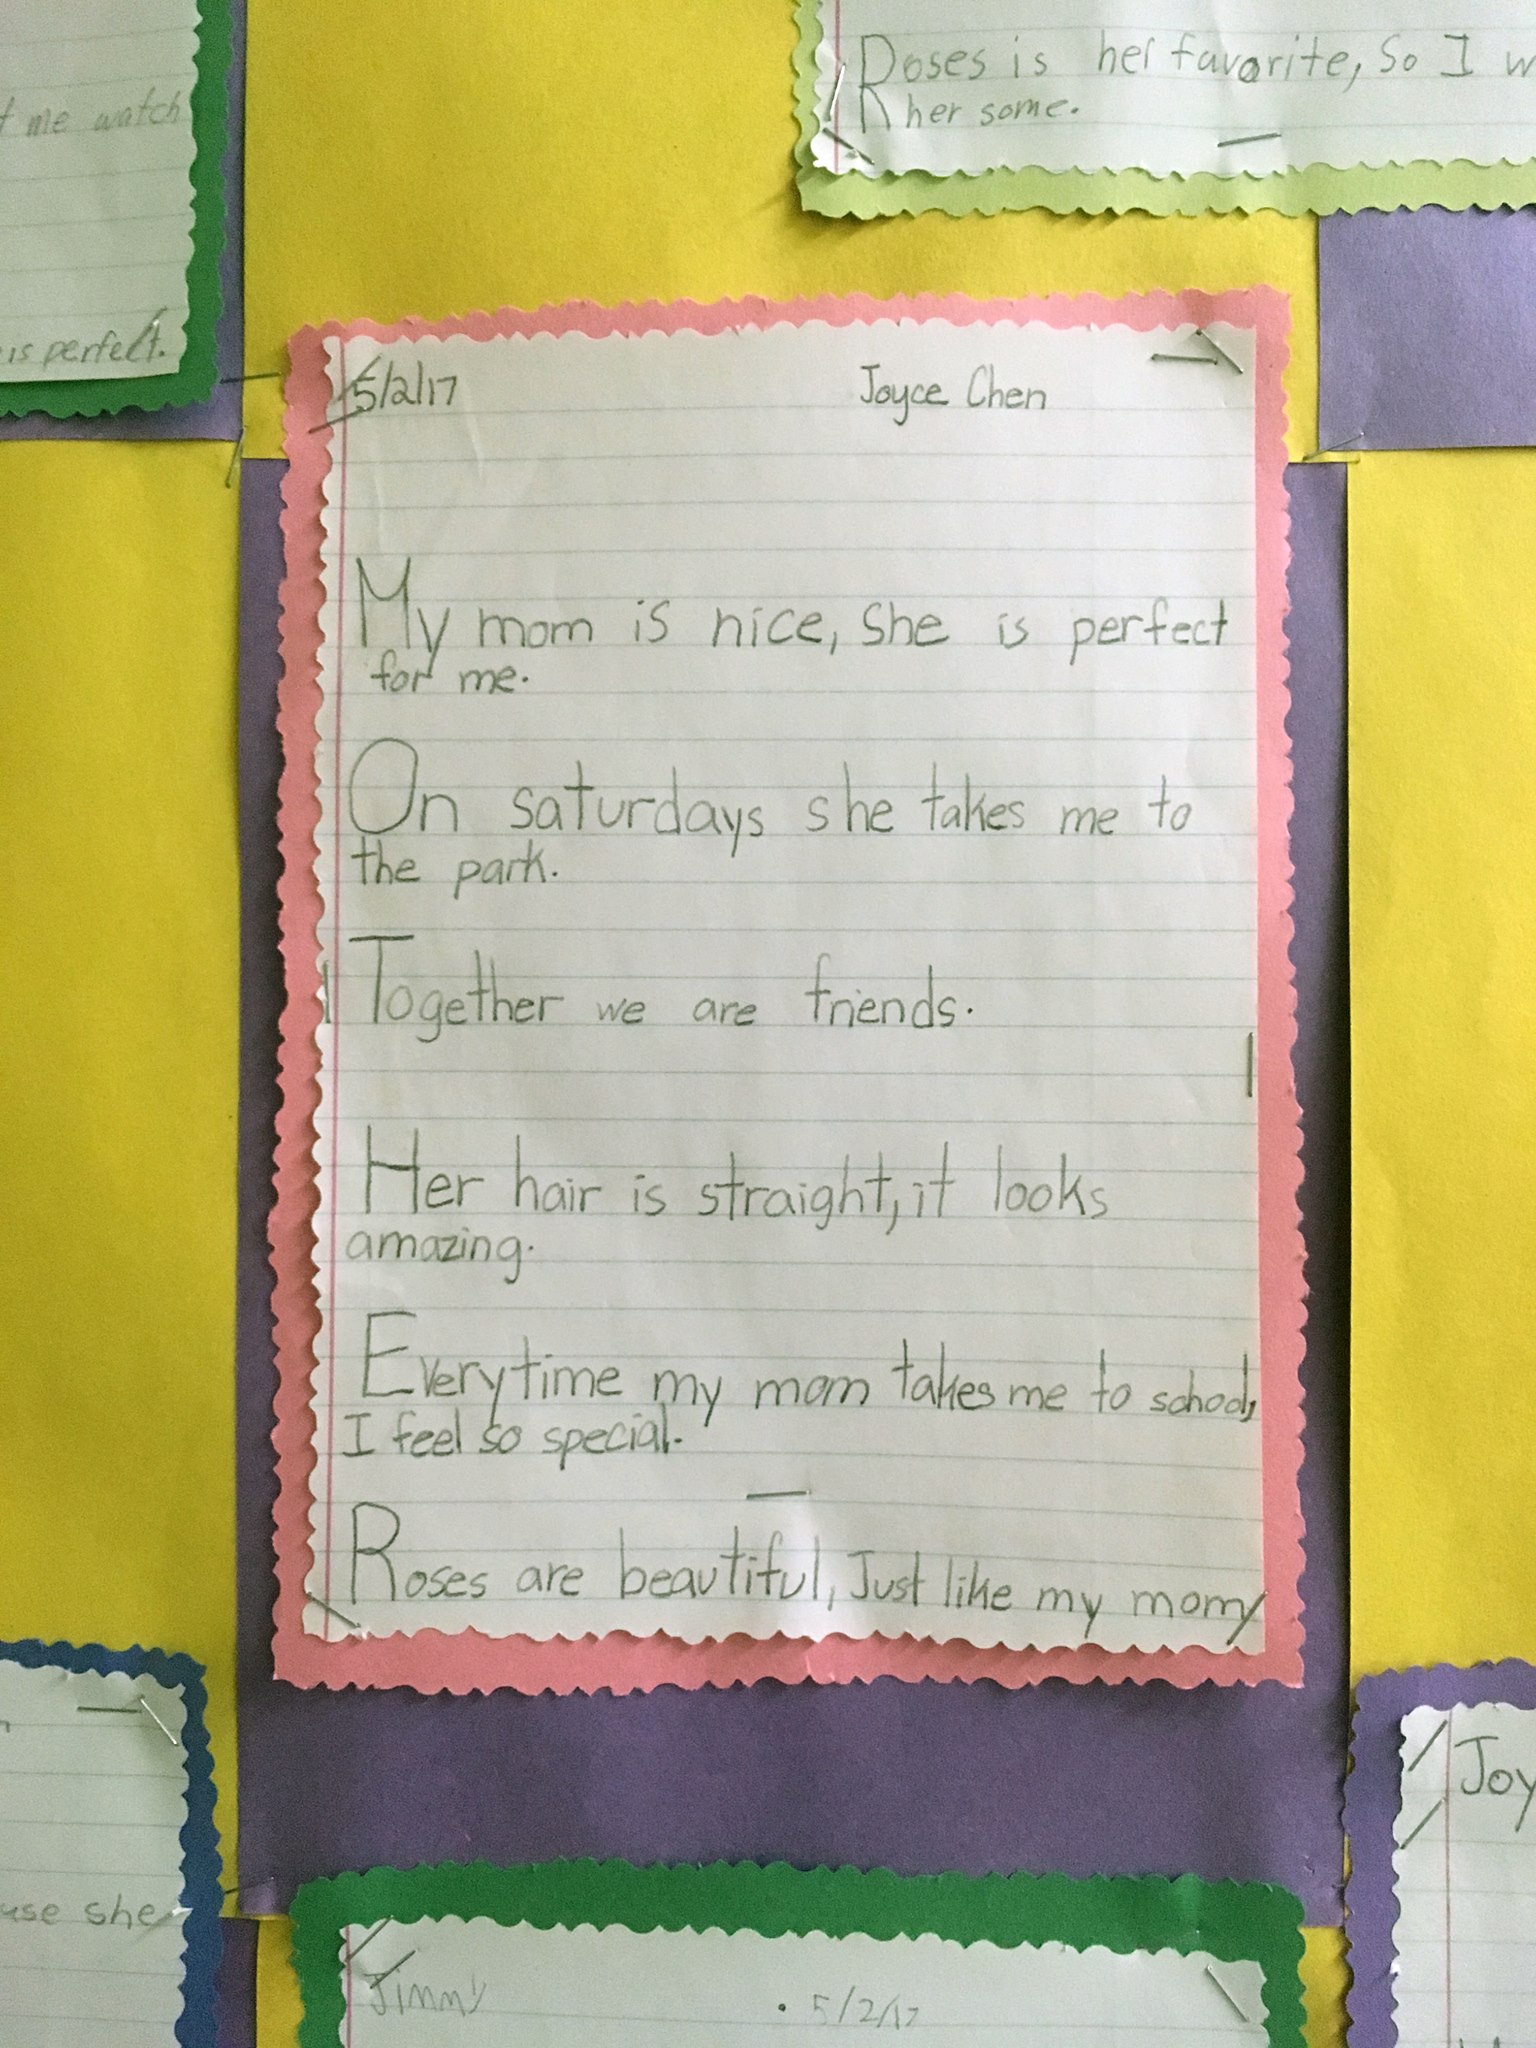 me watch
is perfect.
Roses is her favorite, So I
her some.
5/2/17 Joyce Chen
My mom is nice, She is perfect
for me.
On saturdays she takes me to
the park.
Together we are friends.
Her hair is straight, it looks
amazing.
Everytime my mom takes me to school,
I feel so special.
Roses are beautiful, Just like my mom
she
Joy
Jimmy 5/2/17